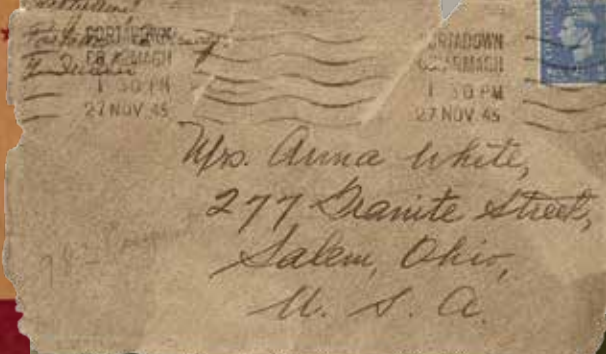 PORTADOWN
CO. ARMAGH
1 30 PM
27 NOV 45
PORTADOWN
CO. ARMAGH
1 30 PM
27 NOV 45
Mrs. Anna White,
277 Granite Street,
Salem, Ohio,
U. S. A.